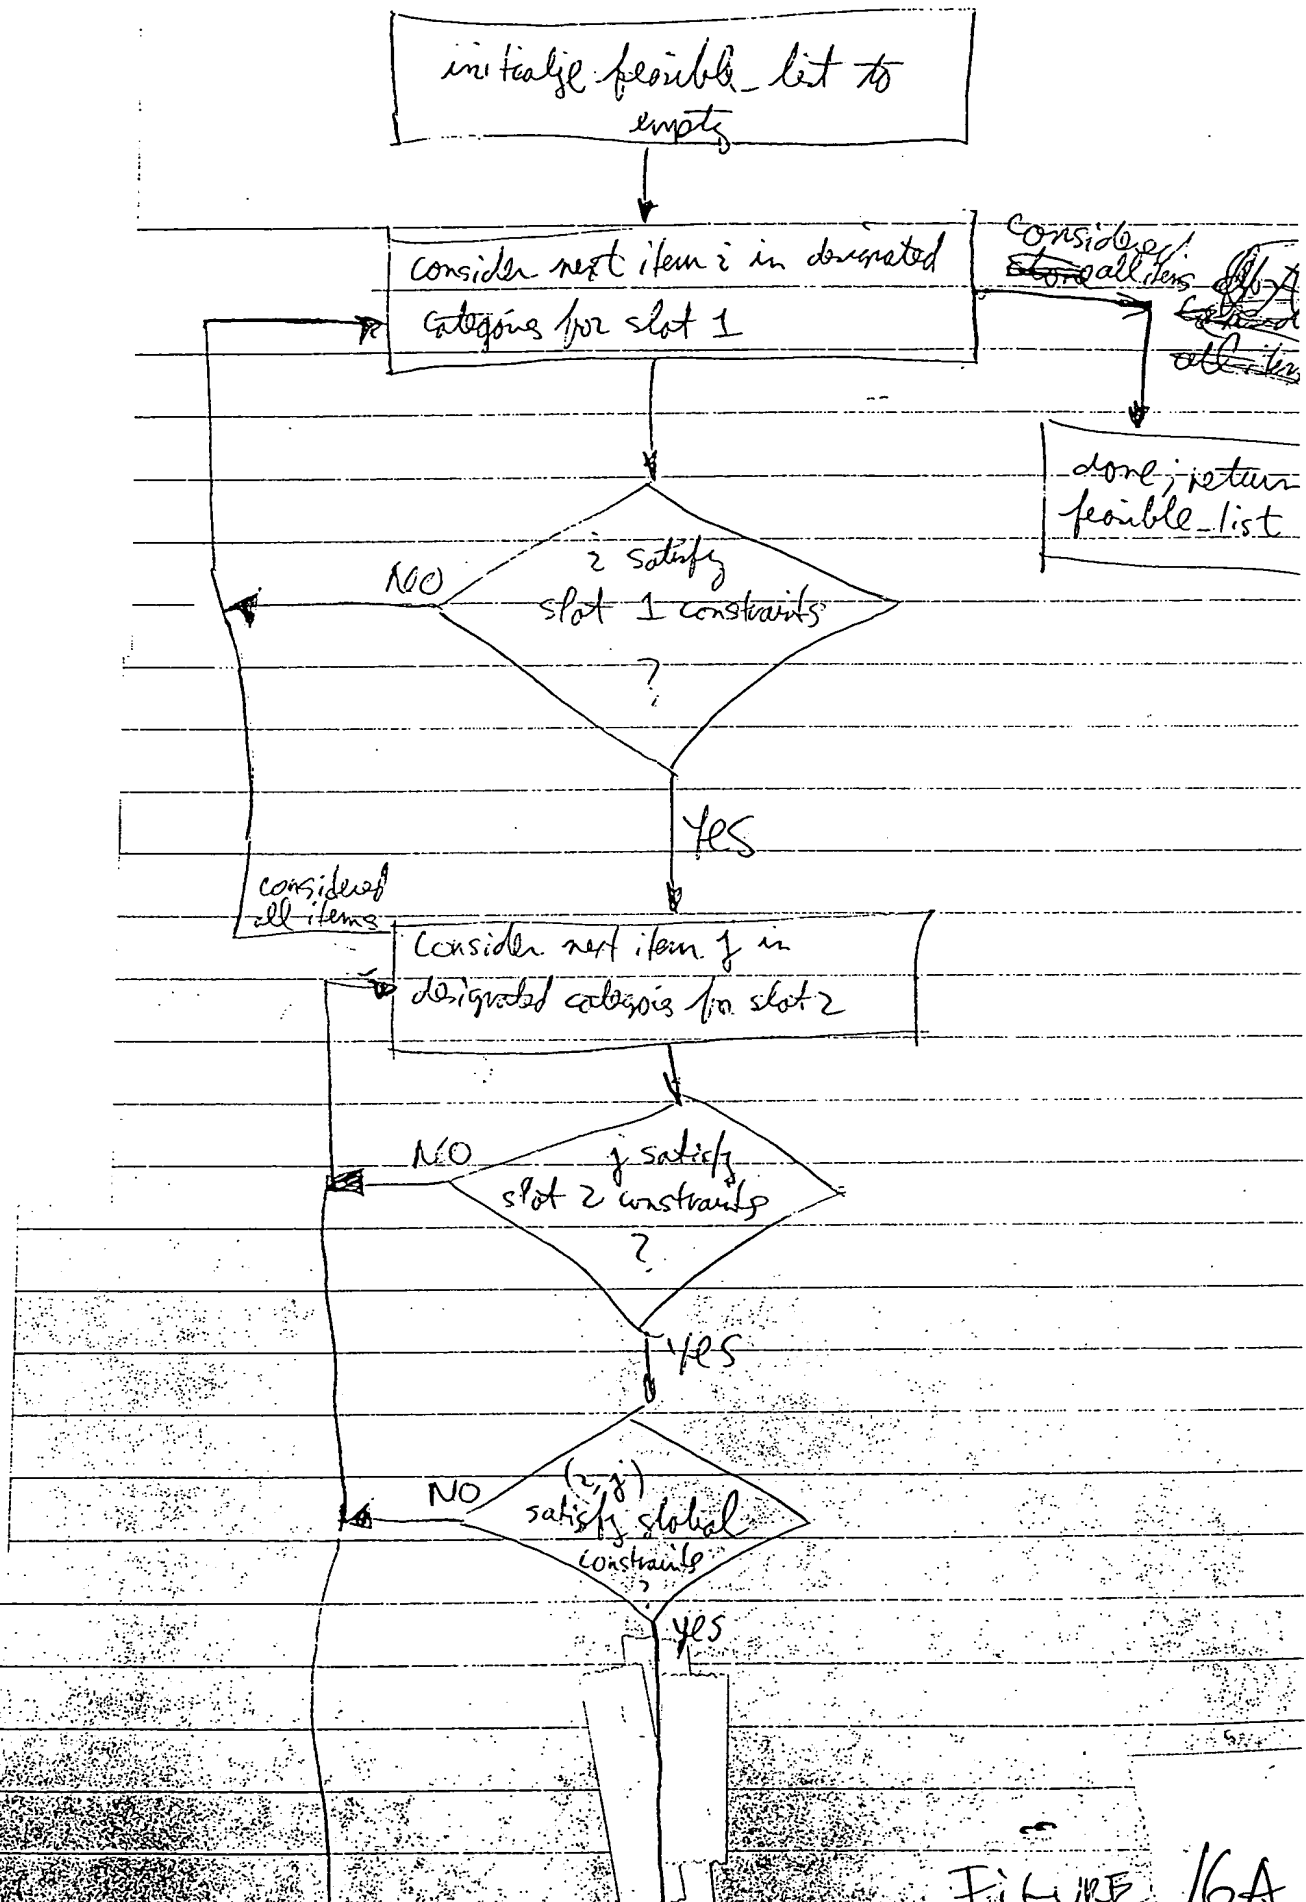 initialize feasible_list to
empty
consider next item i in designated
categories for slot 1
Considered
all items
done; return
feasible_list
i satisfy
slot 1 constraints
?
NO
YES
considered
all items
Consider next item j in
designated categories for slot 2
NO
j satisfy
slot 2 constraints
?
YES
NO
(i, j)
satisfy global
constraints
?
yes
FIGURE 16A